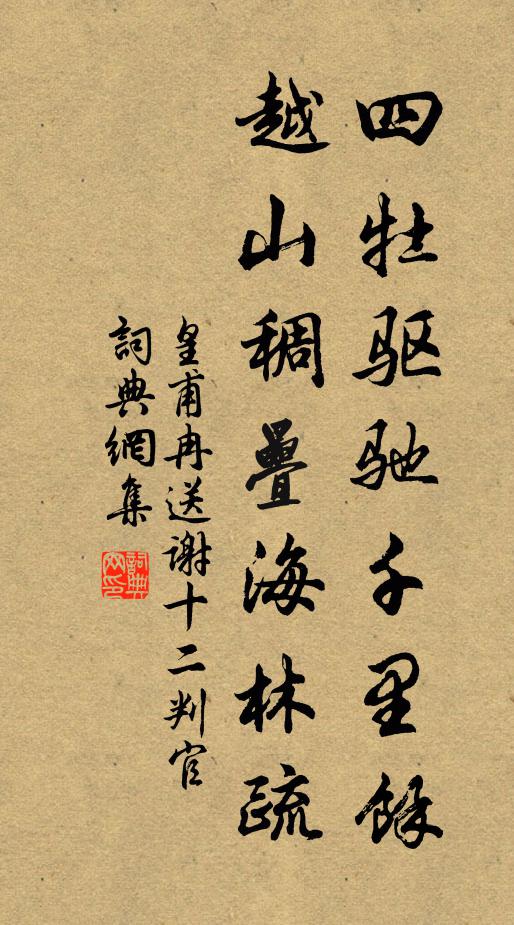 四牡驱驰千里餘
越山稠疊海林疏
皇甫冉送谢十二判官
詞典網集
詞典网印